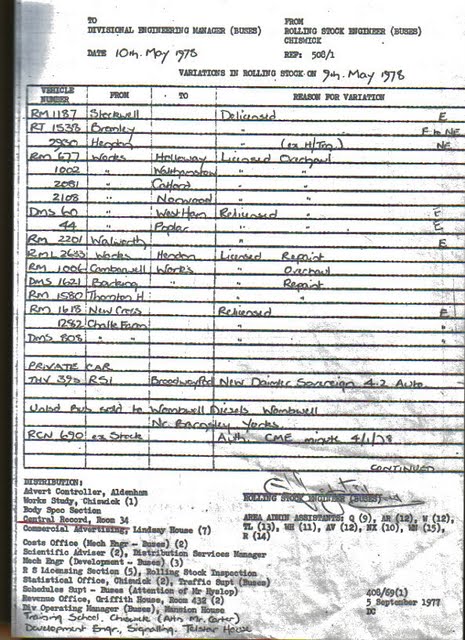 TO FROM
DIVISIONAL ENGINEERING MANAGER (BUSES) ROLLING STOCK ENGINEER (BUSES)
CHISWICK
DATE 10th. May 1978 REF: 508/1
VARIATIONS IN ROLLING STOCK ON 9th. May 1978
VEHICLE NUMBER FROM TO REASON FOR VARIATION
RM 1187 Stockwell Delicensed E
RT 1538 Bromley " F to NE
2930 Hendon " (ex H/Tng.) NE
RM 677 Works Holloway Licensed Overhaul
1002 " Walthamstow " "
2081 " Catford " "
2108 " Norwood " "
DMS 60 West Ham Relicensed E
44 Poplar " E
RM 2201 Walworth " E
RML 2633 Works Hendon Licensed Repaint
RM 1006 Camberwell Works Overhaul
DMS 1621 Barking " Repaint
RM 1580 Thornton H " "
RM 1618 New Cross Relicensed E
1282 Chalk Farm " "
DMS 808 " " " "
PRIVATE CAR
THV 39S RS1 Broadway Rd New Daimler Sovereign 4.2 Auto.
Unlsd Bus sold to Wombwell Diesels Wombwell
Nr. Barnsley Yorks.
RCN 690 ex Stock Auth. CME minute 4/1/78
CONTINUED
DISTRIBUTION:
Advert Controller, Aldenham
Works Study, Chiswick (1)
Body Spec Section
Central Record, Room 34
Commercial Advertising, Lindsay House (7)
Costs Office (Mech Engr - Buses) (2)
Scientific Adviser (2), Distribution Services Manager
Mech Engr (Development - Buses) (3)
R S Licensing Section (5), Rolling Stock Inspection
Statistical Office, Chiswick (2), Traffic Supt (Buses)
Schedules Supt - Buses (Attention of Mr Hyslop)
Revenue Office, Griffith House, Room 432 (2)
Div Operating Manager (Buses), Mansion House
Training School, Chiswick (Attn Mr. Carter)
Development Engr, Signalling, Telstar House
ROLLING STOCK ENGINEER (BUSES)
AREA ADMIN ASSISTANTS: Q (9), AR (12), W (12),
TL (13), WH (11), AV (12), NX (10), WN (15),
R (14)
408/69(1)
5 September 1977
DC